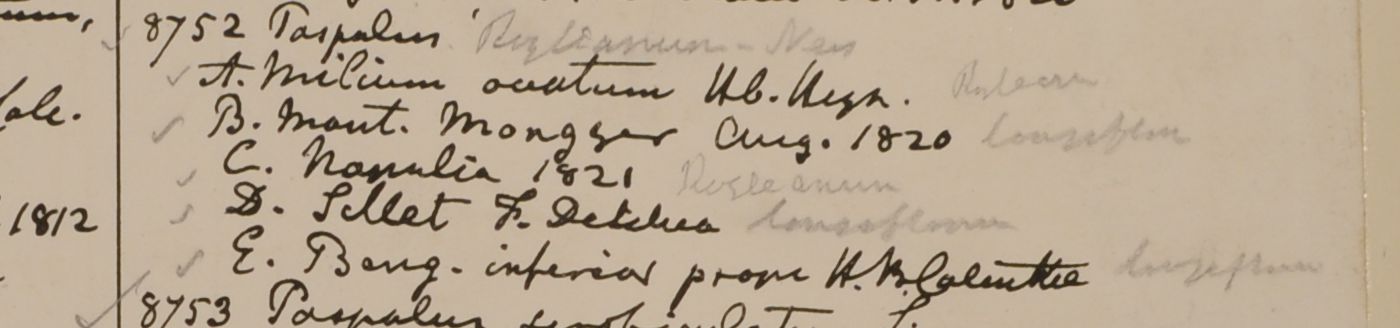 8752 Paspalus Royleanum - Nees
A. Milium ovatum Hb. Heyn. Royleanum
B. Mont. Mongyer Aug. 1820 longiflorum
C. Napalia 1821 Royleanum
1812 D. Sillet F. De longiflorum
E. Beng. inferior prope H. B. Calcuttae longiflorum
8753 Paspalus